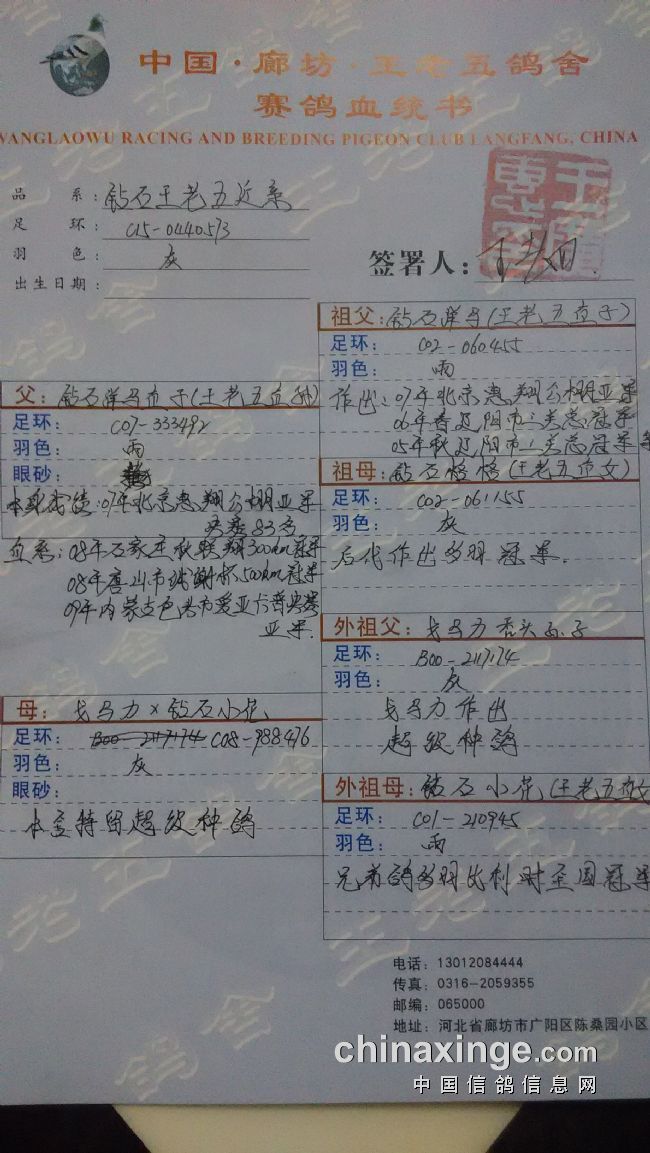 中国·廊坊·王老五鸽舍
赛鸽血统书
WANGLAOWU RACING AND BREEDING PIGEON CLUB LANGFANG, CHINA
品 系: 钻石王老五近亲
足 环: C15-0440573
羽 色: 灰
出生日期:
签署人:
父: 钻石洋马直子(王老五血统)
足环: C07-333492
羽色: 雨
眼砂:
本身成绩:07年北京惠翔公棚亚军
决赛83名
血系:08年石家庄秋联翔300km冠军
08年唐山市 500km冠军
09年内蒙古包头市爱亚卡普决赛
亚军.
母: 戈马力×钻石小花
足环: B00-2117174 C08-988476
羽色: 灰
眼砂:
本舍特留超级种鸽
祖父: 钻石洋马(王老五直子)
足环: C02-060455
羽色: 雨
作出:07年北京惠翔公棚亚军
06年春辽阳市二关总冠军
05年秋辽阳市二关总冠军
祖母: 钻石格格(王老五直女)
足环: C02-061155
羽色: 灰
后代作出多羽冠军.
外祖父: 戈马力秃头孙子
足环: B00-2117174
羽色: 灰
戈马力作出
超级种鸽
外祖母: 钻石小花(王老五直女
足环: C01-210945
羽色: 雨
兄弟鸽多羽比利时全国冠军
电话: 13012084444
传真: 0316-2059355
邮编: 065000
地址: 河北省廊坊市广阳区陈桑园小区
chinaxinge.com
中国信鸽信息网